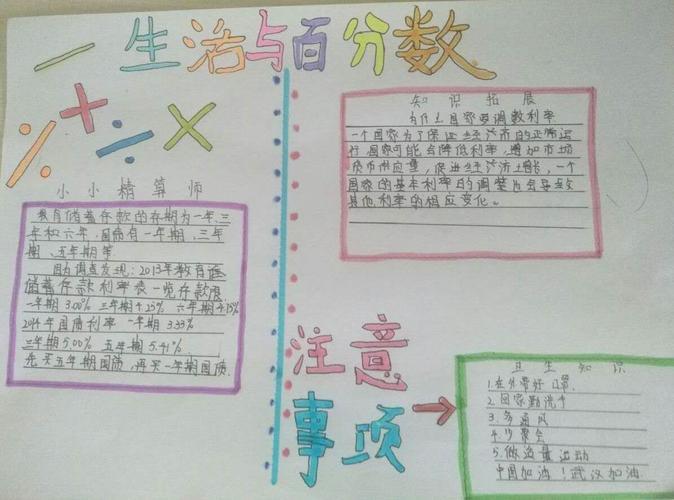 生活与百分数
小小精算师
教育储蓄存款的存期为一年、三
年和六年,国债有一年期、三年
期、五年期等.
2013年教育
储蓄存款利率表一览存款展
一年期 3.00% 三年期 4.25% 六年期 4.75%
2014年国债利率 一年期 3.33%
三年期 5.00% 五年期 5.41%.
先买五年期国债,再买一年期国债.
知识拓展
为什么国家要调整利率
一个国家为了保证经济市的正常运
行 国家可能会降低利率,增加市场
货币供应量,促进经济增长,一个
国家的基本利率的调整
其他利率的相应变化。
注意
事项
卫生知识
1.在外带好口罩.
2.回家勤洗手
3.多通风
4.少聚会
5.做适量运动
中国加油!武汉加油.